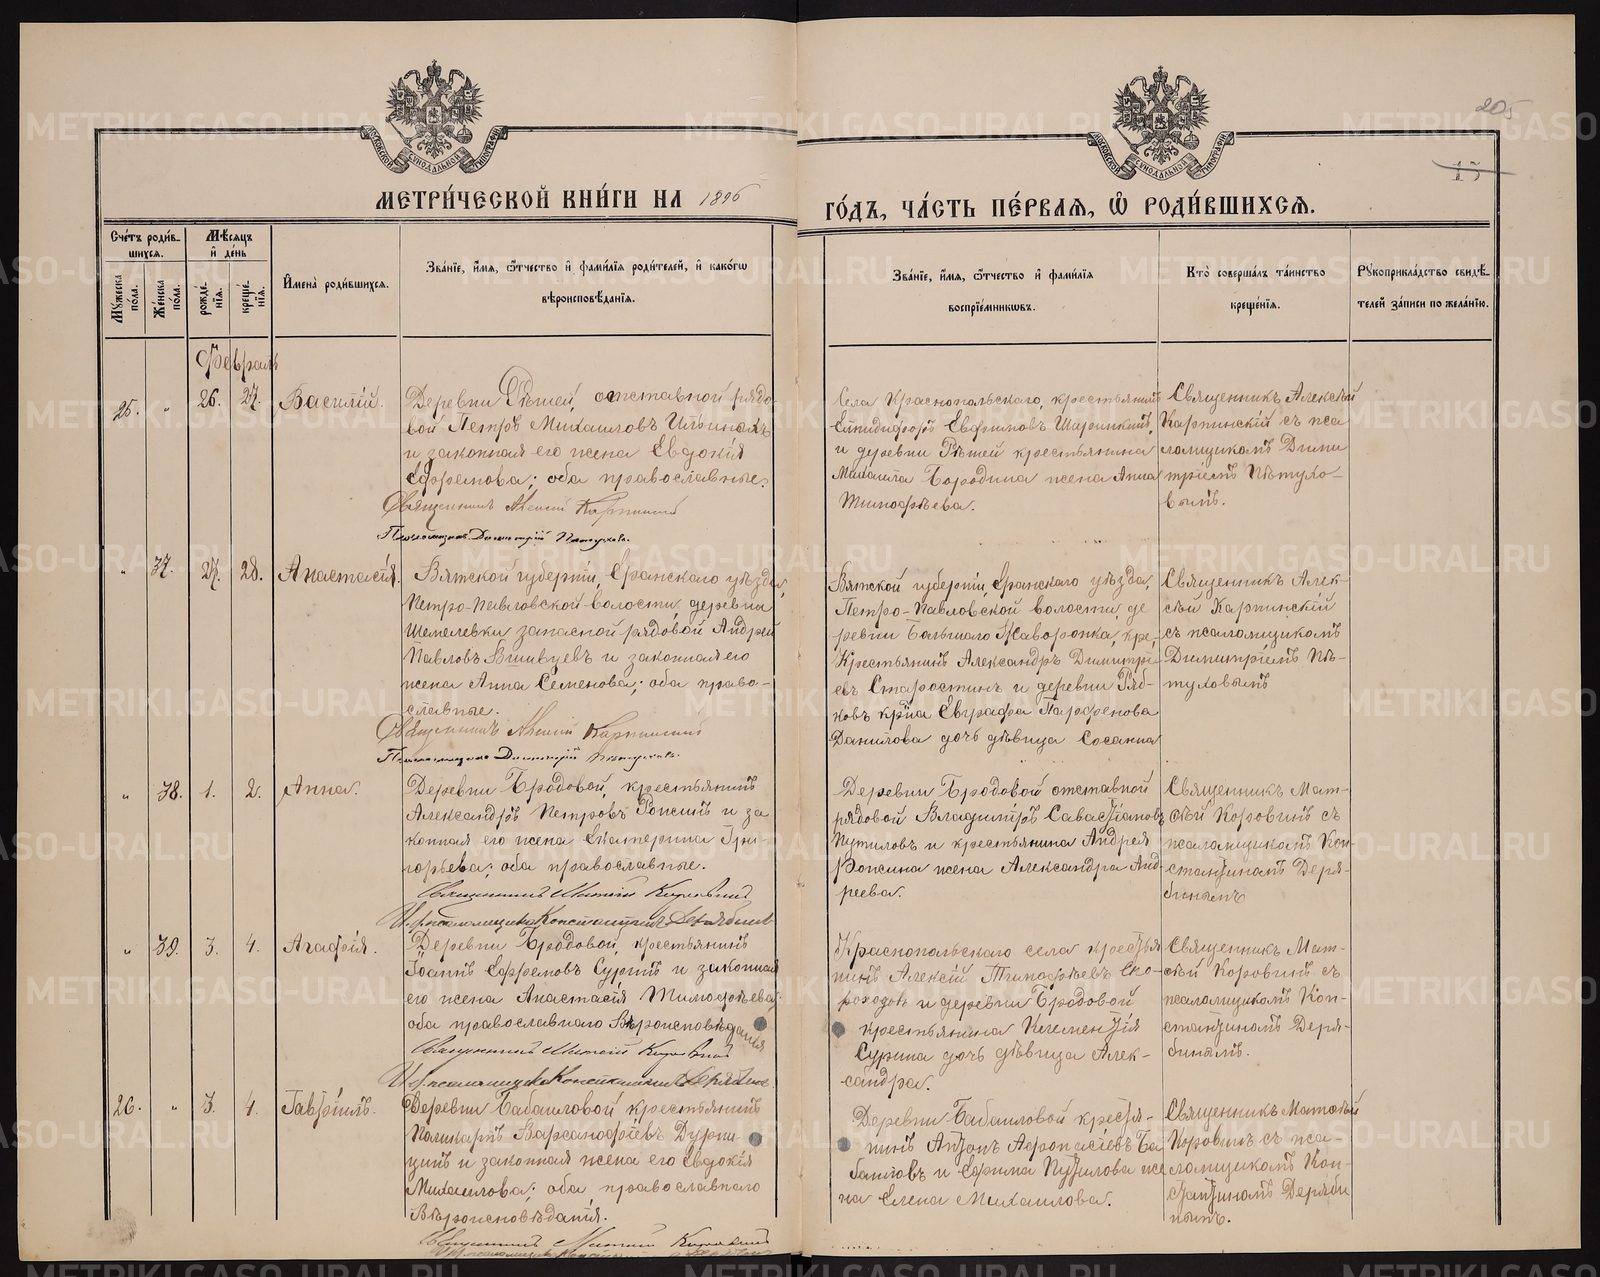 205
15
МОСКОВСКОЙ СѴНОДАЛЬНОЙ ТИПОГРАФІИ
МОСКОВСКОЙ СѴНОДАЛЬНОЙ ТИПОГРАФІИ
МЕТРИ́ЧЕСКОЙ КНИ́ГИ НА 1896
ГО́ДЪ, ЧА́СТЬ ПЕ́РВАѦ, Ѽ РОДИ́ВШИХСѦ.
Сче́тъ роди́в-
шихсѧ.
Мѣ́сѧцъ
и҆ де́нь
Мꙋ́жеска
по́ла.
Же́нска
по́ла.
рожде́-
нїѧ.
креще́-
нїѧ.
И҆мена̀ роди́вшихсѧ.
Зва́нїе, и҆́мѧ, ѻ҆́тчество и҆ фами́лїѧ роди́телей, и҆ како́гѡ
вѣроисповѣ́данїѧ.
Зва́нїе, и҆́мѧ, ѻ҆́тчество и҆ фами́лїѧ
воспрїе́мникѡвъ.
Кто̀ соверша́лъ та́инство
креще́нїѧ.
Рꙋкоприкла́дство свидѣ́-
телей за́писи по жела́нїю.
Февраль
25. " 26. 27. Василій.
Деревни Рѣшей, отставной рядо-
вой Петръ Михаиловъ Ильиныхъ
и законная его жена Евдокія
Ефремова; оба православные.
Священникъ Алексій Карпинскій
Псаломщикъ Димитрій Пѣтуховъ.
Села Краснопольскаго, крестьянинъ
Елпидифоръ Евфимовъ
и деревни Рѣшей крестьянина
Михаила Бородина жена Анна
Тимофѣева.
Священникъ Алексѣй
Карпинскій съ пса
ломщикомъ Дими
тріемъ Пѣтухо-
вымъ.
" 37. 27. 28. Анастасія.
Вятской губерніи, Яранскаго уѣзда,
Петро-Павловской волости, деревни
Шемелевки запасной рядовой Андрей
Павловъ и законная его
жена Анна Семенова; оба право-
славные.
Священникъ Алексій Карпинскій
Псаломщикъ Димитрій Пѣтуховъ.
Вятской губерніи, Яранскаго уѣзда,
Петро-Павловской волости, де
ревни Большаго Жаворонка, кре,
Крестьянинъ Александръ Димитрі-
евъ Старостинъ и деревни Ряб-
ковъ кр̃на Евграфа Парфенова
Данилова дочь дѣвица Сосанна
Священникъ Алек-
сѣй Карпинскій
съ псаломщикомъ
Димитріемъ Пѣ-
туховымъ
" 38. 1. 2. Анна.
Деревни Бродовой, крестьянинъ
Александръ Петровъ Ропсинъ и за
конная его жена Екатерина Гри-
горьева; оба православные.
Священникъ Матѳей Коровинъ
И. д. псаломщика Константинъ Дерябинъ
Деревни Бродовой отставной
рядовой Владиміръ Савастіановъ
Путиловъ и крестьянина Андрея
Ропсина жена Александра Анд-
реева.
Священникъ Мат-
ѳѣй Коровинъ съ
псаломщикомъ Кон-
стантиномъ Деря-
бинымъ
" 39. 3. 4. Агафія.
Деревни Бродовой, крестьянинъ
Іоаннъ Ефремовъ Суринъ и законная
его жена Анастасія Тимофѣева;
оба православнаго Вѣроисповѣданія
Священникъ Матѳей Коровинъ
И. д. псаломщика Константинъ Дерябинъ.
Краснопольскаго села крестья
нинъ Алексій Тимофѣевъ Ско-
роходъ и деревни Бродовой
крестьянина Климентія
Сурина дочь дѣвица Алек-
сандра.
Священникъ Мат-
ѳѣй Коровинъ съ
псаломщикомъ Кон-
стантиномъ Деря-
бинымъ.
26. " 3. 4. Гавріилъ.
Деревни Бабаиловой крестьянинъ
Поликарпъ Варсанофіевъ Дурни-
цинъ и законная жена его Евдокія
Михаилова; оба православнаго
Вѣроисповѣданія.
Священникъ Матѳей Коровинъ
Деревни Бабаиловой крестья-
нинъ Антонъ Аѳонасіевъ Ба
баиловъ и Ефима Путилова же
на Елена Михаилова.
Священникъ Матѳѣй
Коровинъ съ пса-
ломщикомъ Кон-
стантиномъ Деряби
нымъ.